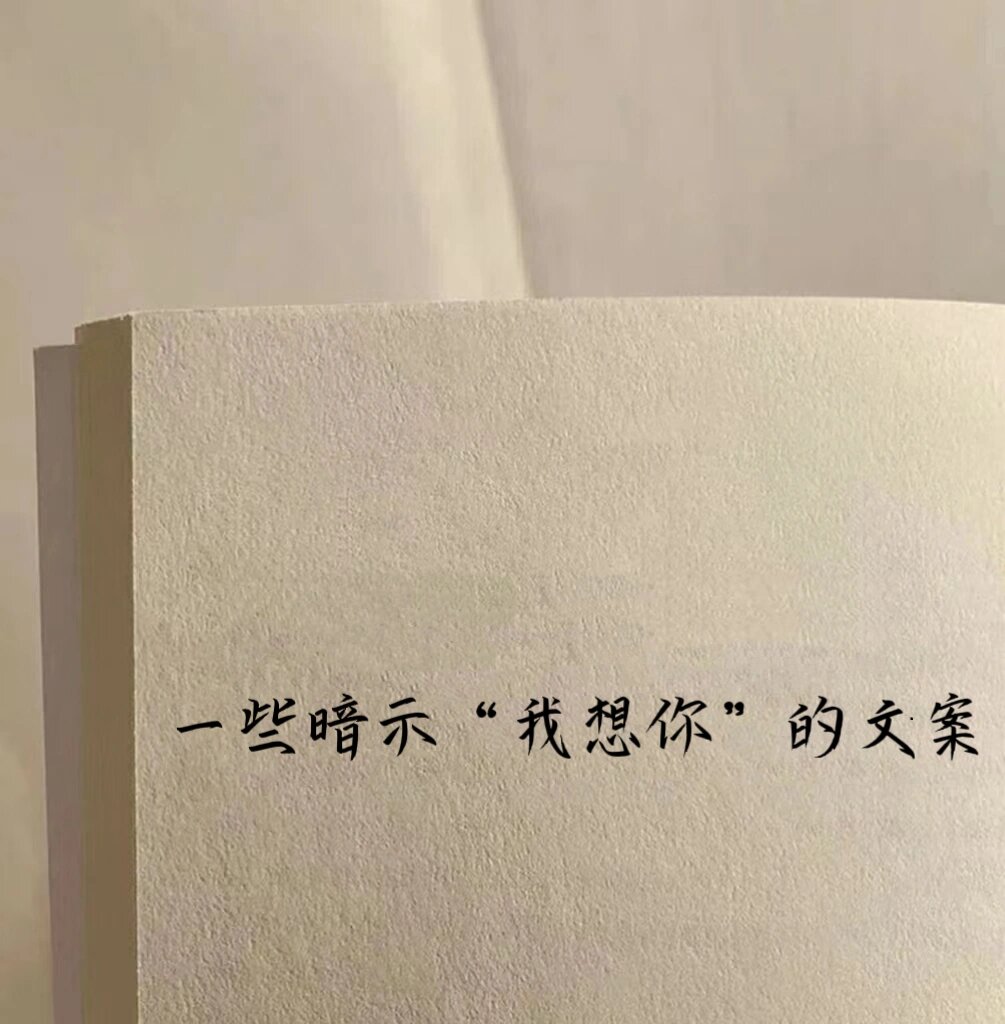 一些暗示“我想你”的文案